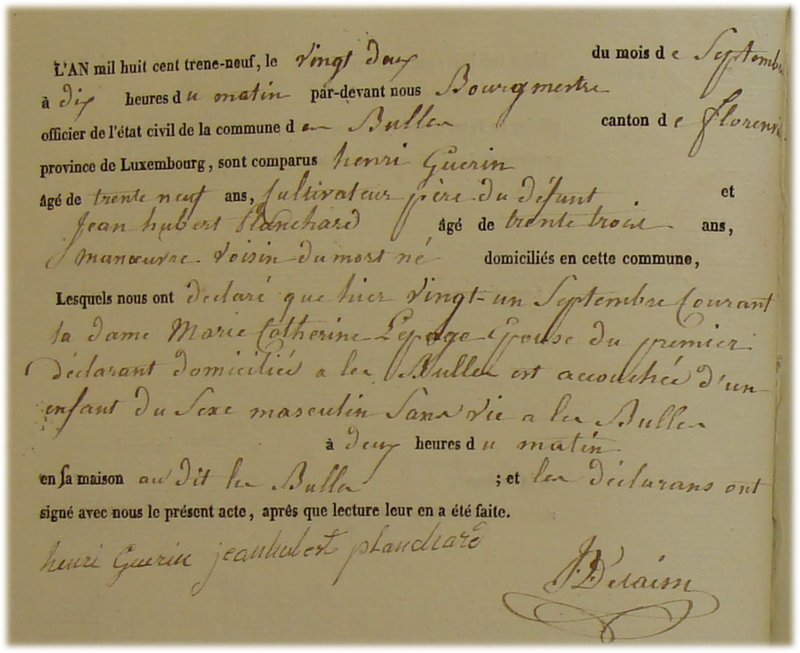 L'AN mil huit cent trene-neuf, le vingt deux du mois de Septembre
à dix heures du matin par-devant nous Bourgmestre
officier de l'état civil de la commune des Bulles canton de florenvi
province de Luxembourg, sont comparus henri Guerin
âgé de trente neuf ans, Cultivateur père du défunt et
Jean hubert Planchard âgé de trente trois ans,
manœuvre voisin du mort né domiciliés en cette commune,
Lesquels nous ont déclaré que hier vingt-un Septembre Courant
la dame Marie Catherine Lepage Epouse du premier
déclarant domiciliée a les Bulles est accouchée d'un
enfant du Sexe masculin Sans vie a les Bulles
à deux heures du matin
en sa maison au dit les Bulles ; et les déclarans ont
signé avec nous le présent acte, après que lecture leur en a été faite.
henri Guerin jeanhubert planchard